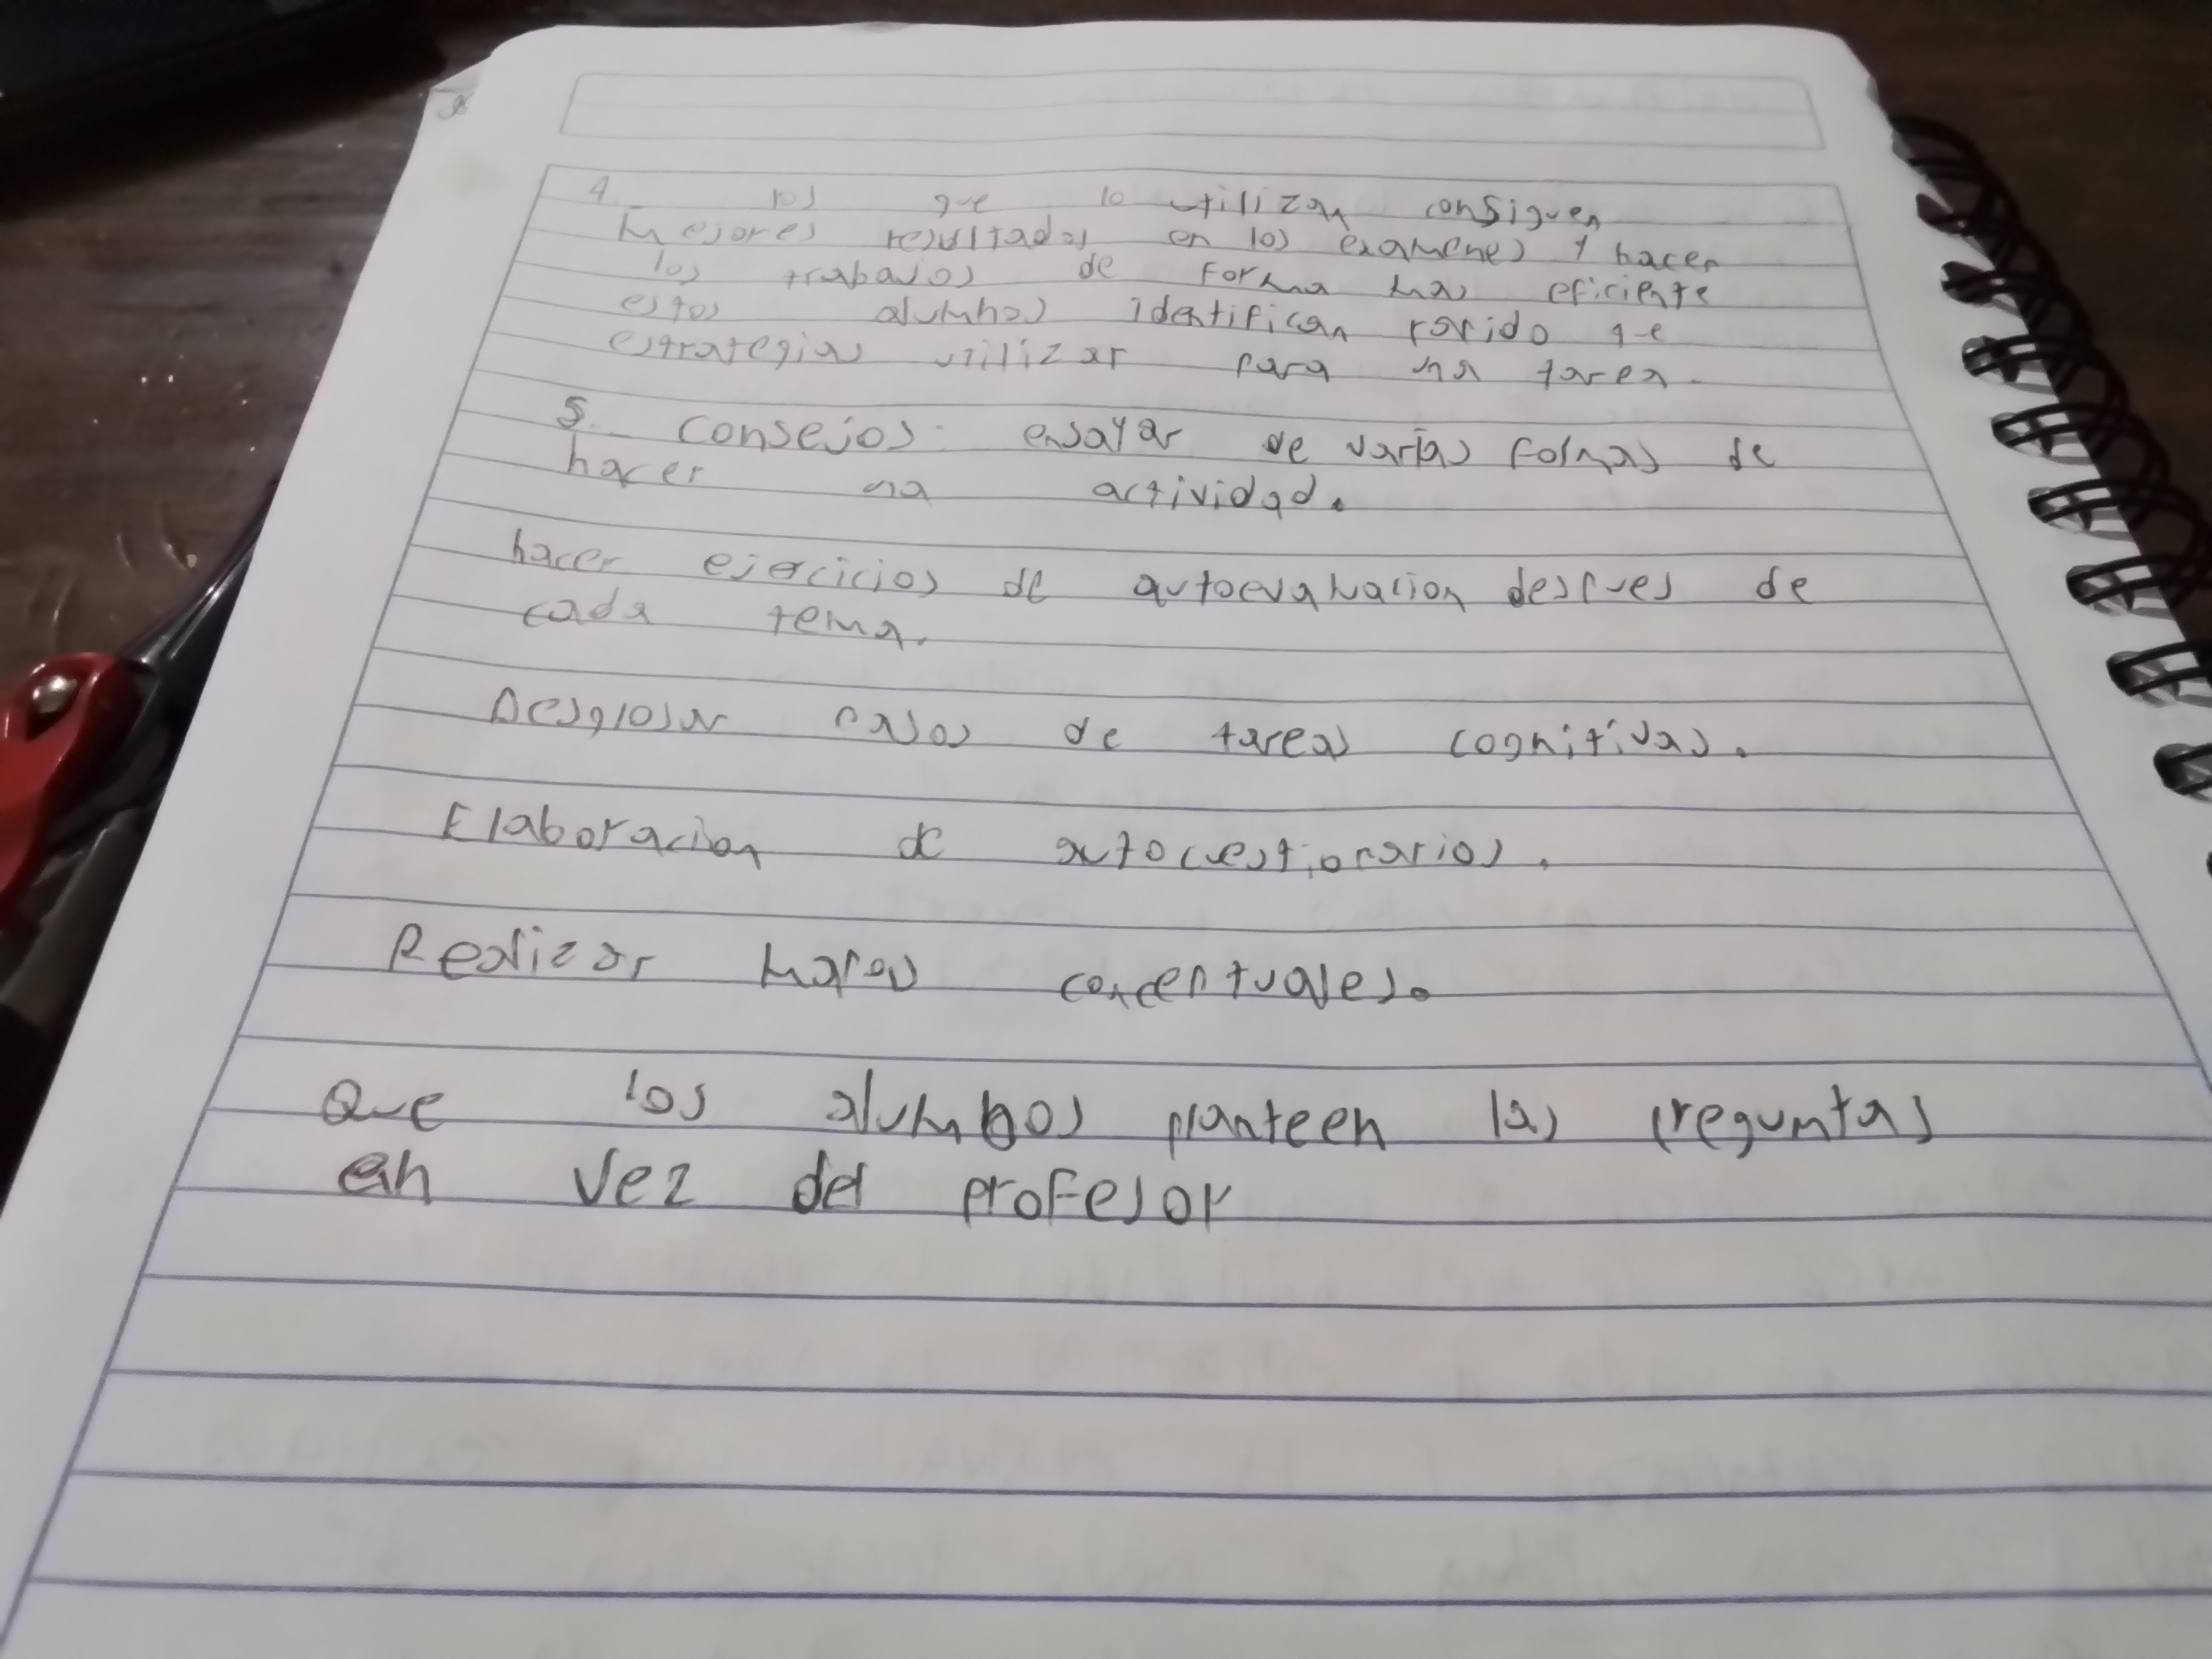 4. los que lo utilizan consiguen
mejores resultados en los examenes y hacen
los trabajos de forma mas eficiente
estos alumnos identifican rapido que
estrategias utilizar para una tarea.
5. Consejos: ensayar de varias formas de
hacer una actividad.
hacer ejercicios de autoevaluacion despues de
cada tema.
Desglosar casos de tareas cognitivas.
Elaboracion de autocuestionarios.
Realizar mapas conceptuales.
Que los alumnos planteen las preguntas
en vez del profesor